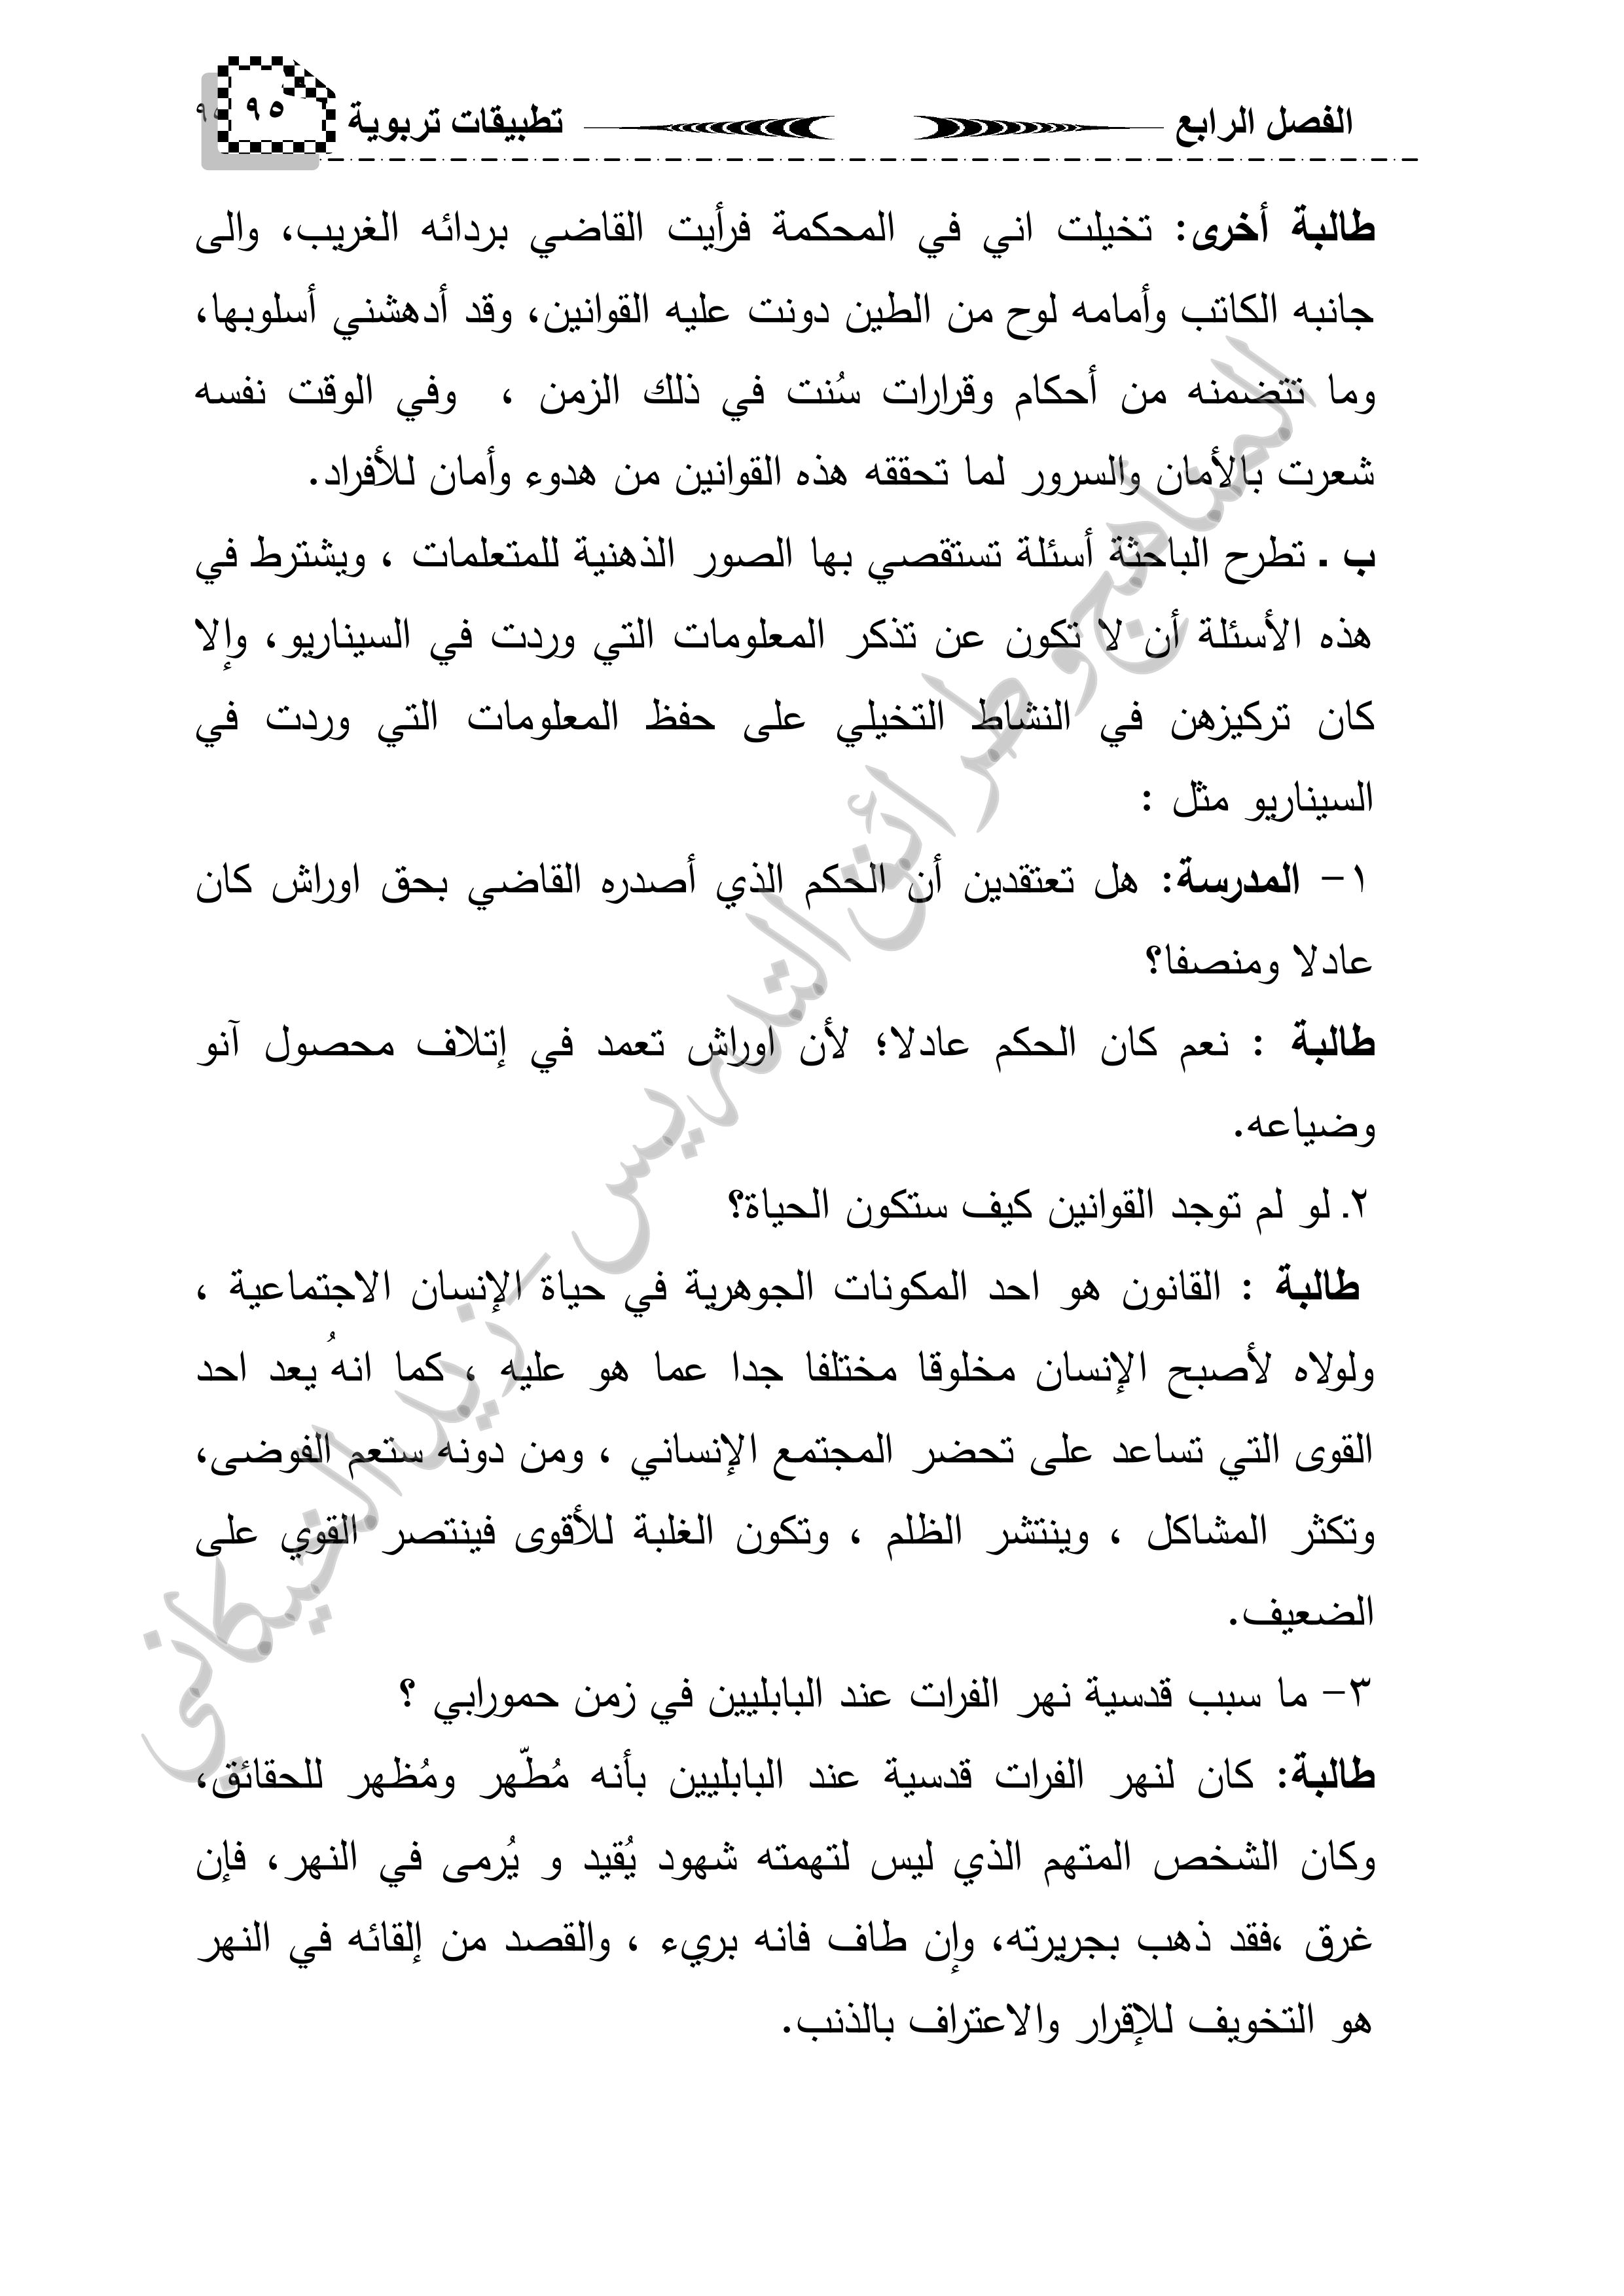 الفصل الرابع تطبيقات تربوية ٩٥
طالبة أخرى: تخيلت اني في المحكمة فرأيت القاضي بردائه الغريب، والى
جانبه الكاتب وأمامه لوح من الطين دونت عليه القوانين، وقد أدهشني أسلوبها،
وما تتضمنه من أحكام وقرارات سُنت في ذلك الزمن ، وفي الوقت نفسه
شعرت بالأمان والسرور لما تحققه هذه القوانين من هدوء وأمان للأفراد.
ب . تطرح الباحثة أسئلة تستقصي بها الصور الذهنية للمتعلمات ، ويشترط في
هذه الأسئلة أن لا تكون عن تذكر المعلومات التي وردت في السيناريو، وإلا
كان تركيزهن في النشاط التخيلي على حفظ المعلومات التي وردت في
السيناريو مثل :
١- المدرسة: هل تعتقدين أن الحكم الذي أصدره القاضي بحق اوراش كان
عادلا ومنصفا؟
طالبة : نعم كان الحكم عادلا؛ لأن اوراش تعمد في إتلاف محصول آنو
وضياعه.
٢. لو لم توجد القوانين كيف ستكون الحياة؟
طالبة : القانون هو احد المكونات الجوهرية في حياة الإنسان الاجتماعية ،
ولولاه لأصبح الإنسان مخلوقا مختلفا جدا عما هو عليه ، كما انهُ يعد احد
القوى التي تساعد على تحضر المجتمع الإنساني ، ومن دونه ستعم الفوضى،
وتكثر المشاكل ، وينتشر الظلم ، وتكون الغلبة للأقوى فينتصر القوي على
الضعيف.
٣- ما سبب قدسية نهر الفرات عند البابليين في زمن حمورابي ؟
طالبة: كان لنهر الفرات قدسية عند البابليين بأنه مُطّهر ومُظهر للحقائق،
وكان الشخص المتهم الذي ليس لتهمته شهود يُقيد و يُرمى في النهر، فإن
غرق ،فقد ذهب بجريرته، وإن طاف فانه بريء ، والقصد من إلقائه في النهر
هو التخويف للإقرار والاعتراف بالذنب.
المناهج وطرائق التدريس - زيد الخيكاني